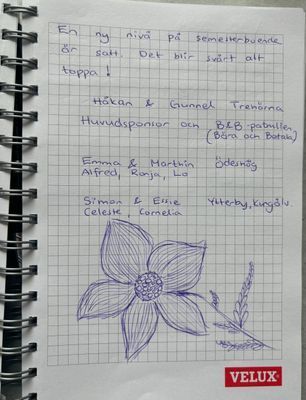 En ny nivå på semesterboende
är satt. Det blir svårt att
toppa!
Håkan & Gunnel Trehörna
Huvudsponsor och B&B patrullen,
(Böra och Betala)
Emma & Marthin Ödeshög
Alfred, Ronja, Lo
Simon & Essie Ytterby, Kungälv
Celeste, Kornelia
VELUX